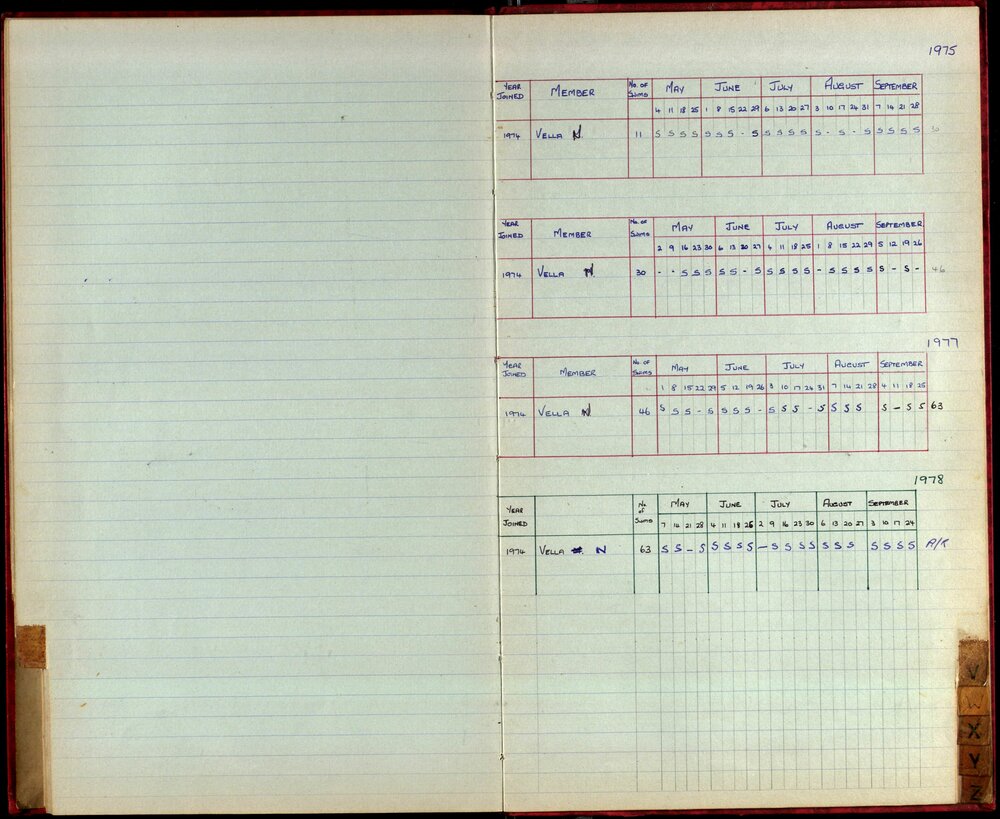 1975
YEAR JOINED MEMBER No. OF SWIMS MAY JUNE JULY AUGUST SEPTEMBER
4 11 18 25 1 8 15 22 29 6 13 20 27 3 10 17 24 31 7 14 21 28
1974 VELLA N 11 S S S S S S S - S S S S S S - S - S S S S S
YEAR JOINED MEMBER No. OF SWIMS MAY JUNE JULY AUGUST SEPTEMBER
2 9 16 23 30 6 13 20 27 4 11 18 25 1 8 15 22 29 5 12 19 26
1974 VELLA N 30 - - S S S S S - S S S S S - S S S S S - S - 46
1977
YEAR JOINED MEMBER No. OF SWIMS MAY JUNE JULY AUGUST SEPTEMBER
1 8 15 22 29 5 12 19 26 3 10 17 24 31 7 14 21 28 4 11 18 25
1974 VELLA N 46 S S S - S S S S - S S S - S S S S S - S S 63
1978
YEAR JOINED No. of SWIMS MAY JUNE JULY AUGUST SEPTEMBER
7 14 21 28 4 11 18 25 2 9 16 23 30 6 13 20 27 3 10 17 24
1974 VELLA N 63 S S - S S S S S - S S S S S S S S S S S A/R
V
W
X
Y
Z